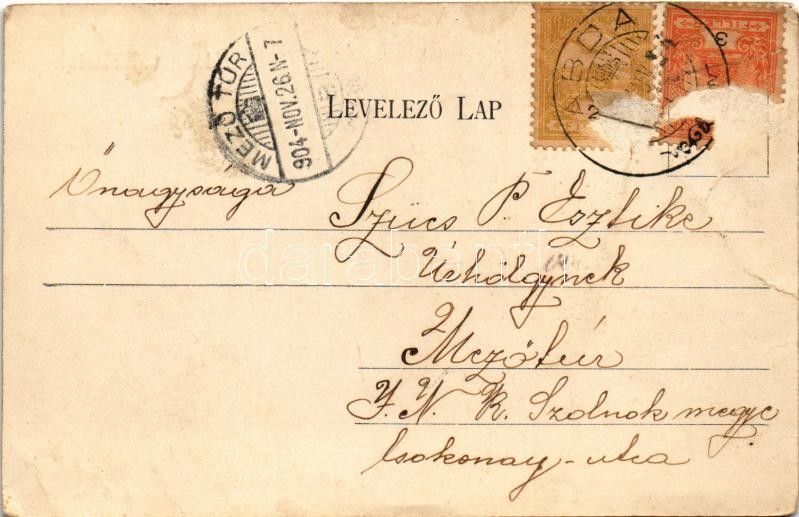 MEZŐ TÚR
904 NOV. 26. N 7
LEVELEZŐ LAP
ABDA
FILLÉR
3
2
Őnagysága
Szücs P. Esztike
Úrhölgynek
Mezőtúr
J. N. K. Szolnok megye
Csokonay-utca
darabanth